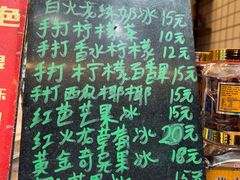 白火龙珠奶冰 15元
手打柠檬茶 10元
手打香水柠檬 12元
手打柠檬百香果 15元
手打西瓜椰椰 15元
红芭芒果冰 15元
红火龙草莓冰 20元
黄金奇异果冰 18元
冰 15元
色